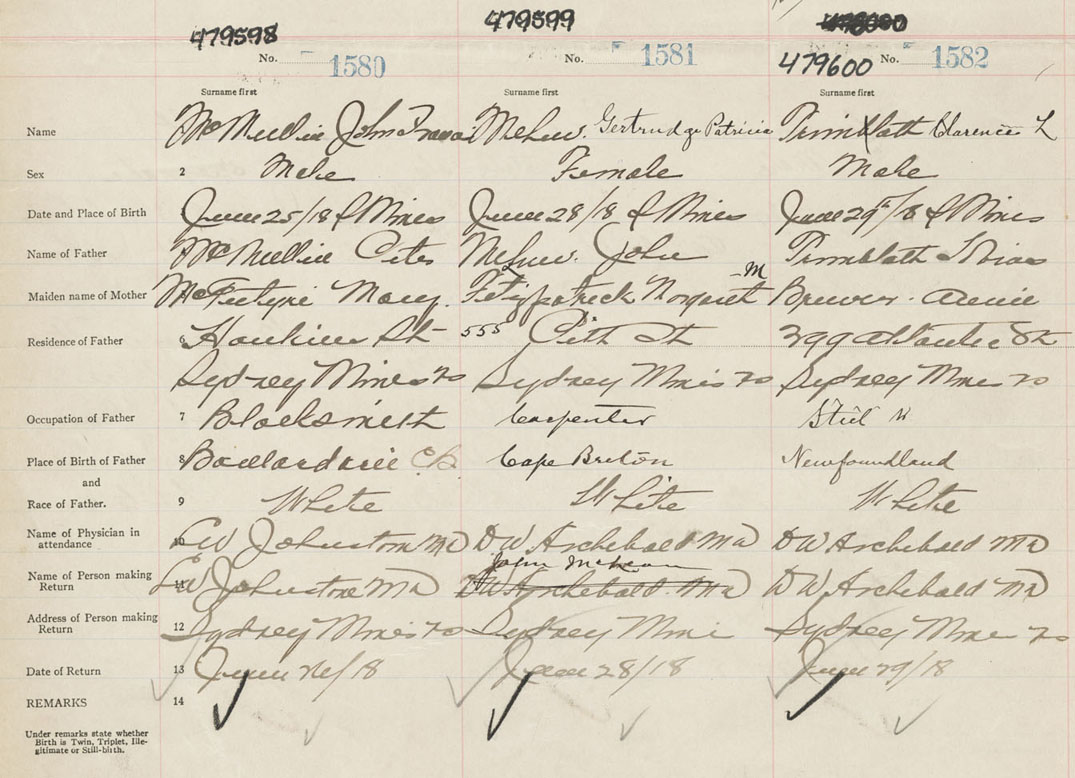 479598 479599 479600
No. 1580 No. 1581 479600 No. 1582
Surname first Surname first Surname first
Name McMullin John Francis Gertrudge Patricia Trimblath Clarence L
Sex 2 Male Female Male
Date and Place of Birth June 25/18 S Mines June 28/18 S Mines June 29/18 S Mines
Name of Father McMullin Peter John Trimblath
Maiden name of Mother McIntyre Mary Fitzpatrick Margaret M Brewer Annie
Residence of Father 6 Hawkins St 555 Pitt St 399 Atlantic St
Sydney Mines NS Sydney Mines NS Sydney Mines NS
Occupation of Father 7 Blacksmith Carpenter Steel W
Place of Birth of Father 8 CB Cape Breton Newfoundland
and
Race of Father. 9 White White White
Name of Physician in 10 LW Johnstone MD DW Archibald MD DW Archibald MD
attendance
John
Name of Person making 11 LW Johnstone MD DW Archibald MD DW Archibald MD
Return
Address of Person making 12 Sydney Mines NS Sydney Mines Sydney Mines NS
Return
Date of Return 13 June 26/18 June 28/18 June 29/18
REMARKS 14
Under remarks state whether
Birth is Twin, Triplet, Ille-
gitimate or Still-birth.